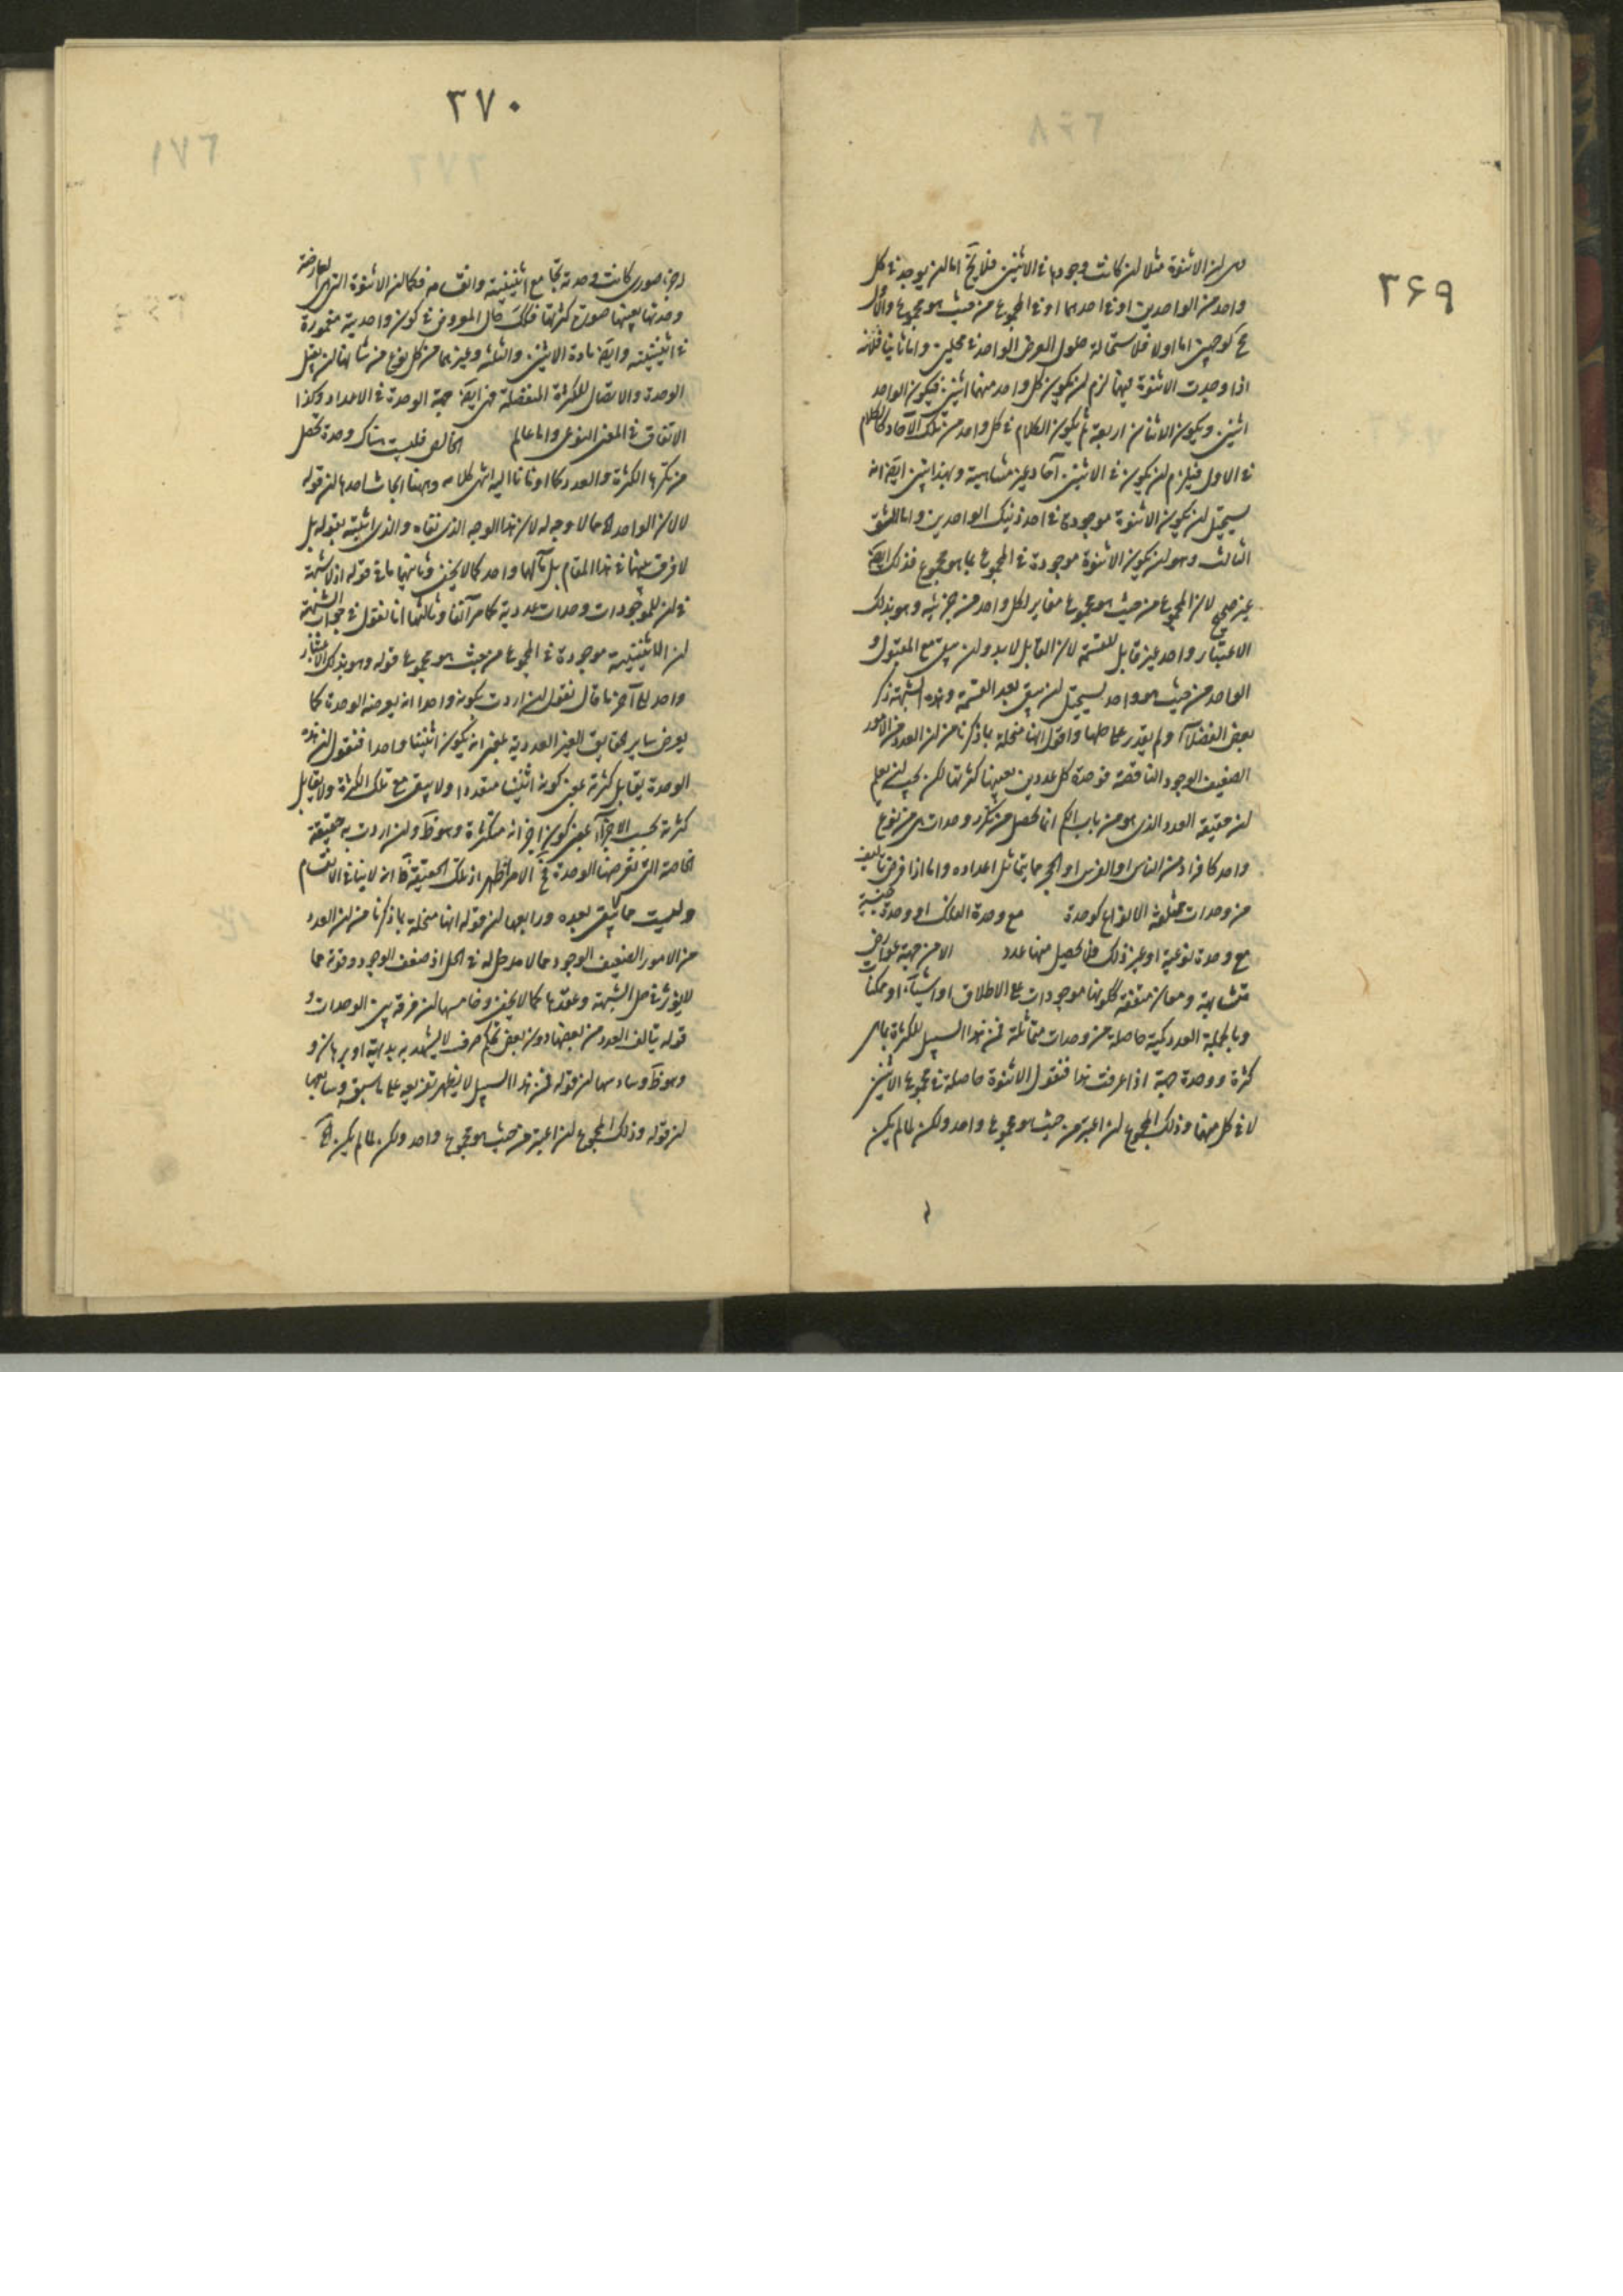 ۳۶۹
هى ان الاثنوة مثلا ان كانت وجودها فى الاثنين فلا يخ اما ان يوجد فى كل
واحد من الواحدين او فى احدهما او فى المجموع من حيث هو مجموع والاول
مح لوجهين اما اولا فلاستحالة حلول العرض الواحد فى محلين واما ثانيا فلانه
اذا وجدت الاثنوة فيهما لزم ان يكون كل واحد منهما اثنين فيكون الواحد
اثنين ويكون الاثنان اربعة ثم يكون الكلام فى كل واحد من تلك الآحاد كالكلام
فى الاول فيلزم ان يكون فى الاثنين آحاد غير متناهية وبهذا تبين ايضا انه
يستحيل ان يكون الاثنوة موجودة فى احد ذينك الواحدين واما الشق
الثالث وهو ان يكون الاثنوة موجودة فى المجموع بما هو مجموع فذلك ايضا
غير صحيح لان المجموع من حيث هو مجموع مغاير لكل واحد من جزئيه وهو بذلك
الاعتبار واحد غير قابل للقسمة لان القابل لابد وان يبقى مع المقبول و
الواحد من حيث هو واحد يستحيل ان يبقى بعد القسمة وهذه الشبهة ذكر
بعض الفضلاء ولم يقدر على حلها واقول انها منحلة بما ذكرنا من ان العدد من الامور
الضعيف الوجود الناقصة فوحدة كل عدد من بعينها كثرتها لكن يجب ان يعلم
ان حقيقة العدد الذى هو من باب الكم انما يحصل من تكرر وحدات هى من نوع
واحد كافراد من الناس او الفرس او الحجر مما يتماثل اعداده واما اذا فرض تاليف
من وحدات مختلفة الانواع كوحدة مع وحدة الفلك او وحدة جنسية
مع وحدة نوعية او غير ذلك فلا يحصل منها عدد الا من جهة عوارض
متشابهة ومعان متفقه ككونها موجودات على الاطلاق او اشياء او ممكنات
وبالجملة العدد كمية حاصلة من وحدات متماثلة فمن هذا السبيل للكثرة بما هى
كثرة ووحدة جهة اذا عرفت هذا فنقول الاثنوة حاصلة فى مجموع الاثنين
لا فى كل منهما وذلك المجموع ان اعتبر من حيث هو مجموع واحد ولكن لما لم يكن
۳۷۰
له جزء صورى كانت وحدته تجامع اثنينيته وانقسامه فكما ان الاثنوة التى لعارضة
وحدتها بعينها صورة كثرتها فكذلك حال المعروض فى كون واحديته مغمورة
فى اثنينيته وايضا مادة الاثنين والثلثة وغيرهما من كل نوع من شانها ان يقبل
الوحدة والاتصال للكثرة المنفصلة فهى ايضا جهة الوحدة فى الاعداد وكذا
الاتفاق فى المعنى النوعى واما عالم الخالص فليست هناك وحدة تحصل
من تكررها الكثرة والعدد كما اومانا اليه انتهى كلامه وههنا ابحاث احدها ان قوله
لا لان الواحد اه مما لا وجه له لان هذا الوجه الذى نفاه والذى اثبته بقوله بل
لا فرق بينهما فى هذا المقام بل مآلهما واحد كما لا يخفى وثانيها ما فى قوله اذ لا شبهة
فى ان للموجودات وحدات عددية كما مر آنفا وثالثها انا نقول فى جواب الشبهة
ان الاثنينية موجودة فى المجموع من حيث هو مجموع قوله وهو بذلك الاعتبار
واحد الى آخر ما قال نقول ان اردت بكونه واحدا انه يعرضه الوحدة كما
يعرض ساير الحقايق الغير العددية بمعنى انه يكون اثنينا واحدا فنقول ان هذه
الوحدة يقابل كثرته بمعنى كونه اثنينا متعددا ولا يبقى مع تلك الكثرة ولا يقابل
كثرته بحسب الاجزاء بمعنى كون اجزائه متكثرة وهو ظ وان اردت به حقيقة
الخاصة التى تعرضها الوحدة فح الامر اظهر اذ تلك الحقيقة ظ انه لا ينافى الانقسام
وليست مما يبقى بعده ورابعها ان قوله انها منحلة بما ذكرنا من ان العدد
من الامور الضعيف الوجود مما لا مدخل له فى الحل اذ ضعف الوجود وقوته مما
لا يؤثر فى حل الشبهة وعقدها كما لا يخفى وخامسها ان فرقه بين الوحدات و
قوله يتالف العدد من بعضها دون بعض تحكم صرف لا يشهد به بديهة او برهان و
وهو ظ وسادسها ان قوله فمن هذا السبيل لا يظهر تفريعه على ما سبق وسابعها
ان قوله وذلك المجموع ان اعتبر من حيث هو مجموع واحد ولكن لما لم يكن اه